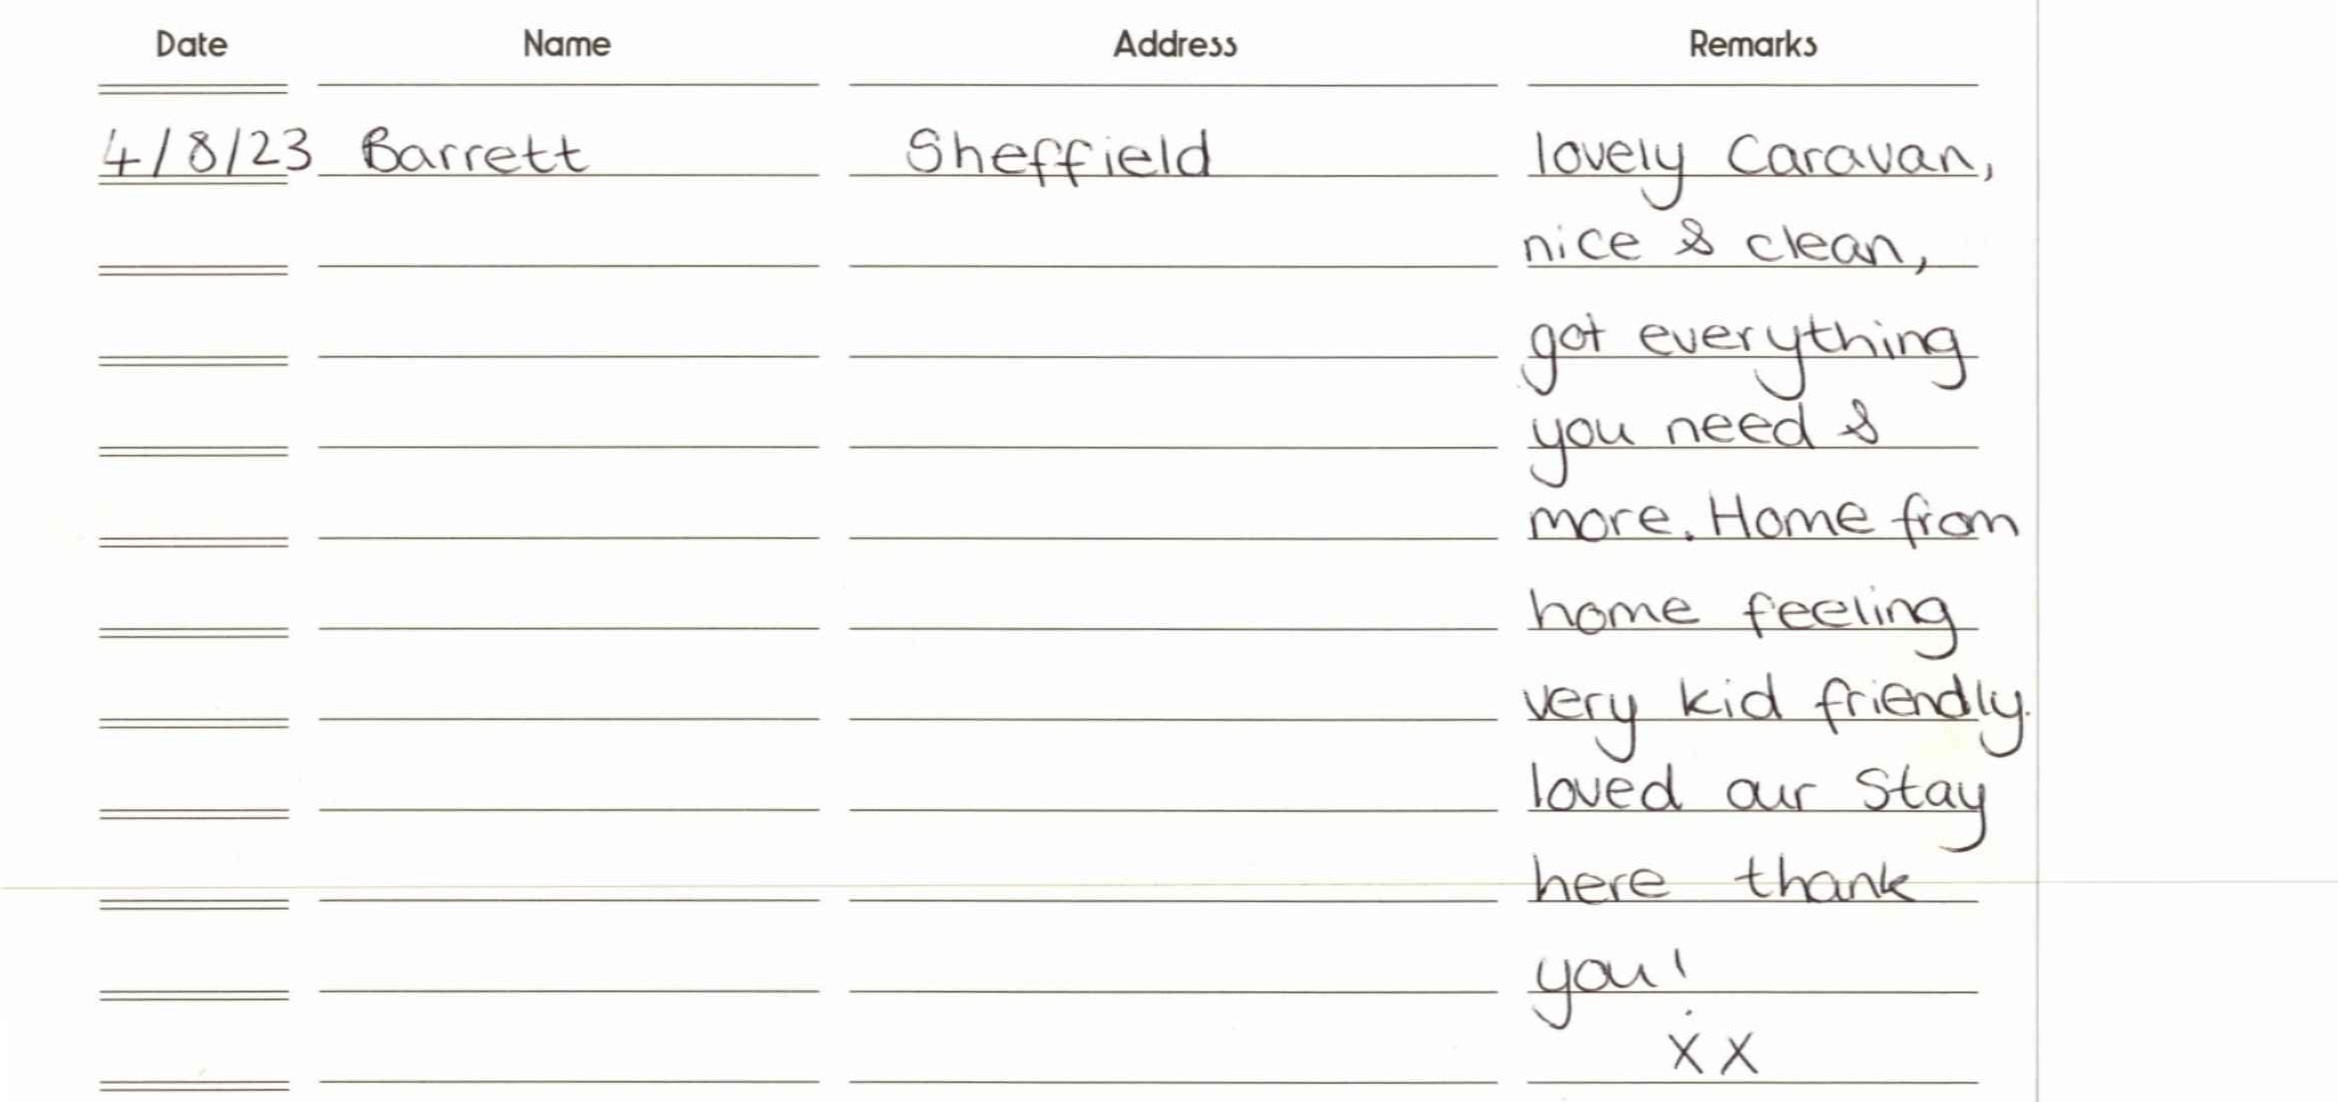 Date Name Address Remarks
4/8/23 Barrett Sheffield lovely Caravan,
nice & clean,
got everything
you need &
more. Home from
home feeling
very kid friendly.
loved our Stay
here thank
you!
x x